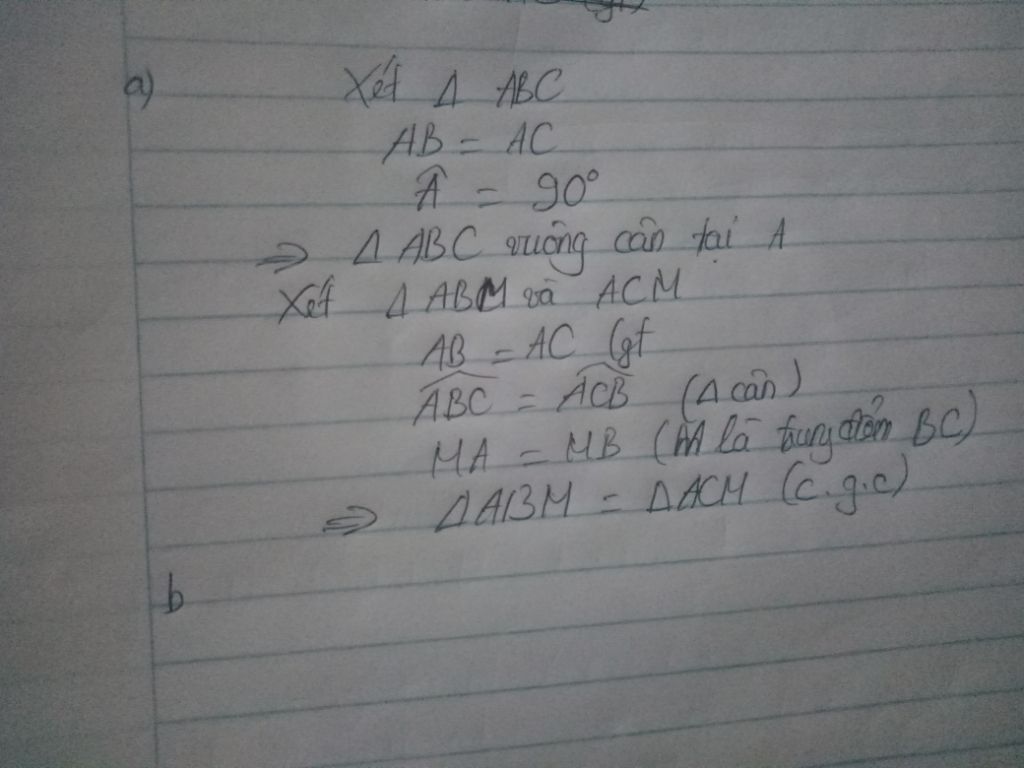 a) Xét Δ ABC
AB = AC
Â = 90°
=> Δ ABC vuông cân tại A
Xét Δ ABM và ACM
AB = AC (gt
\widehat{ABC} = \widehat{ACB} (Δ cân)
MA = MB (M là trung điểm BC)
=> ΔABM = ΔACM (c.g.c)
b